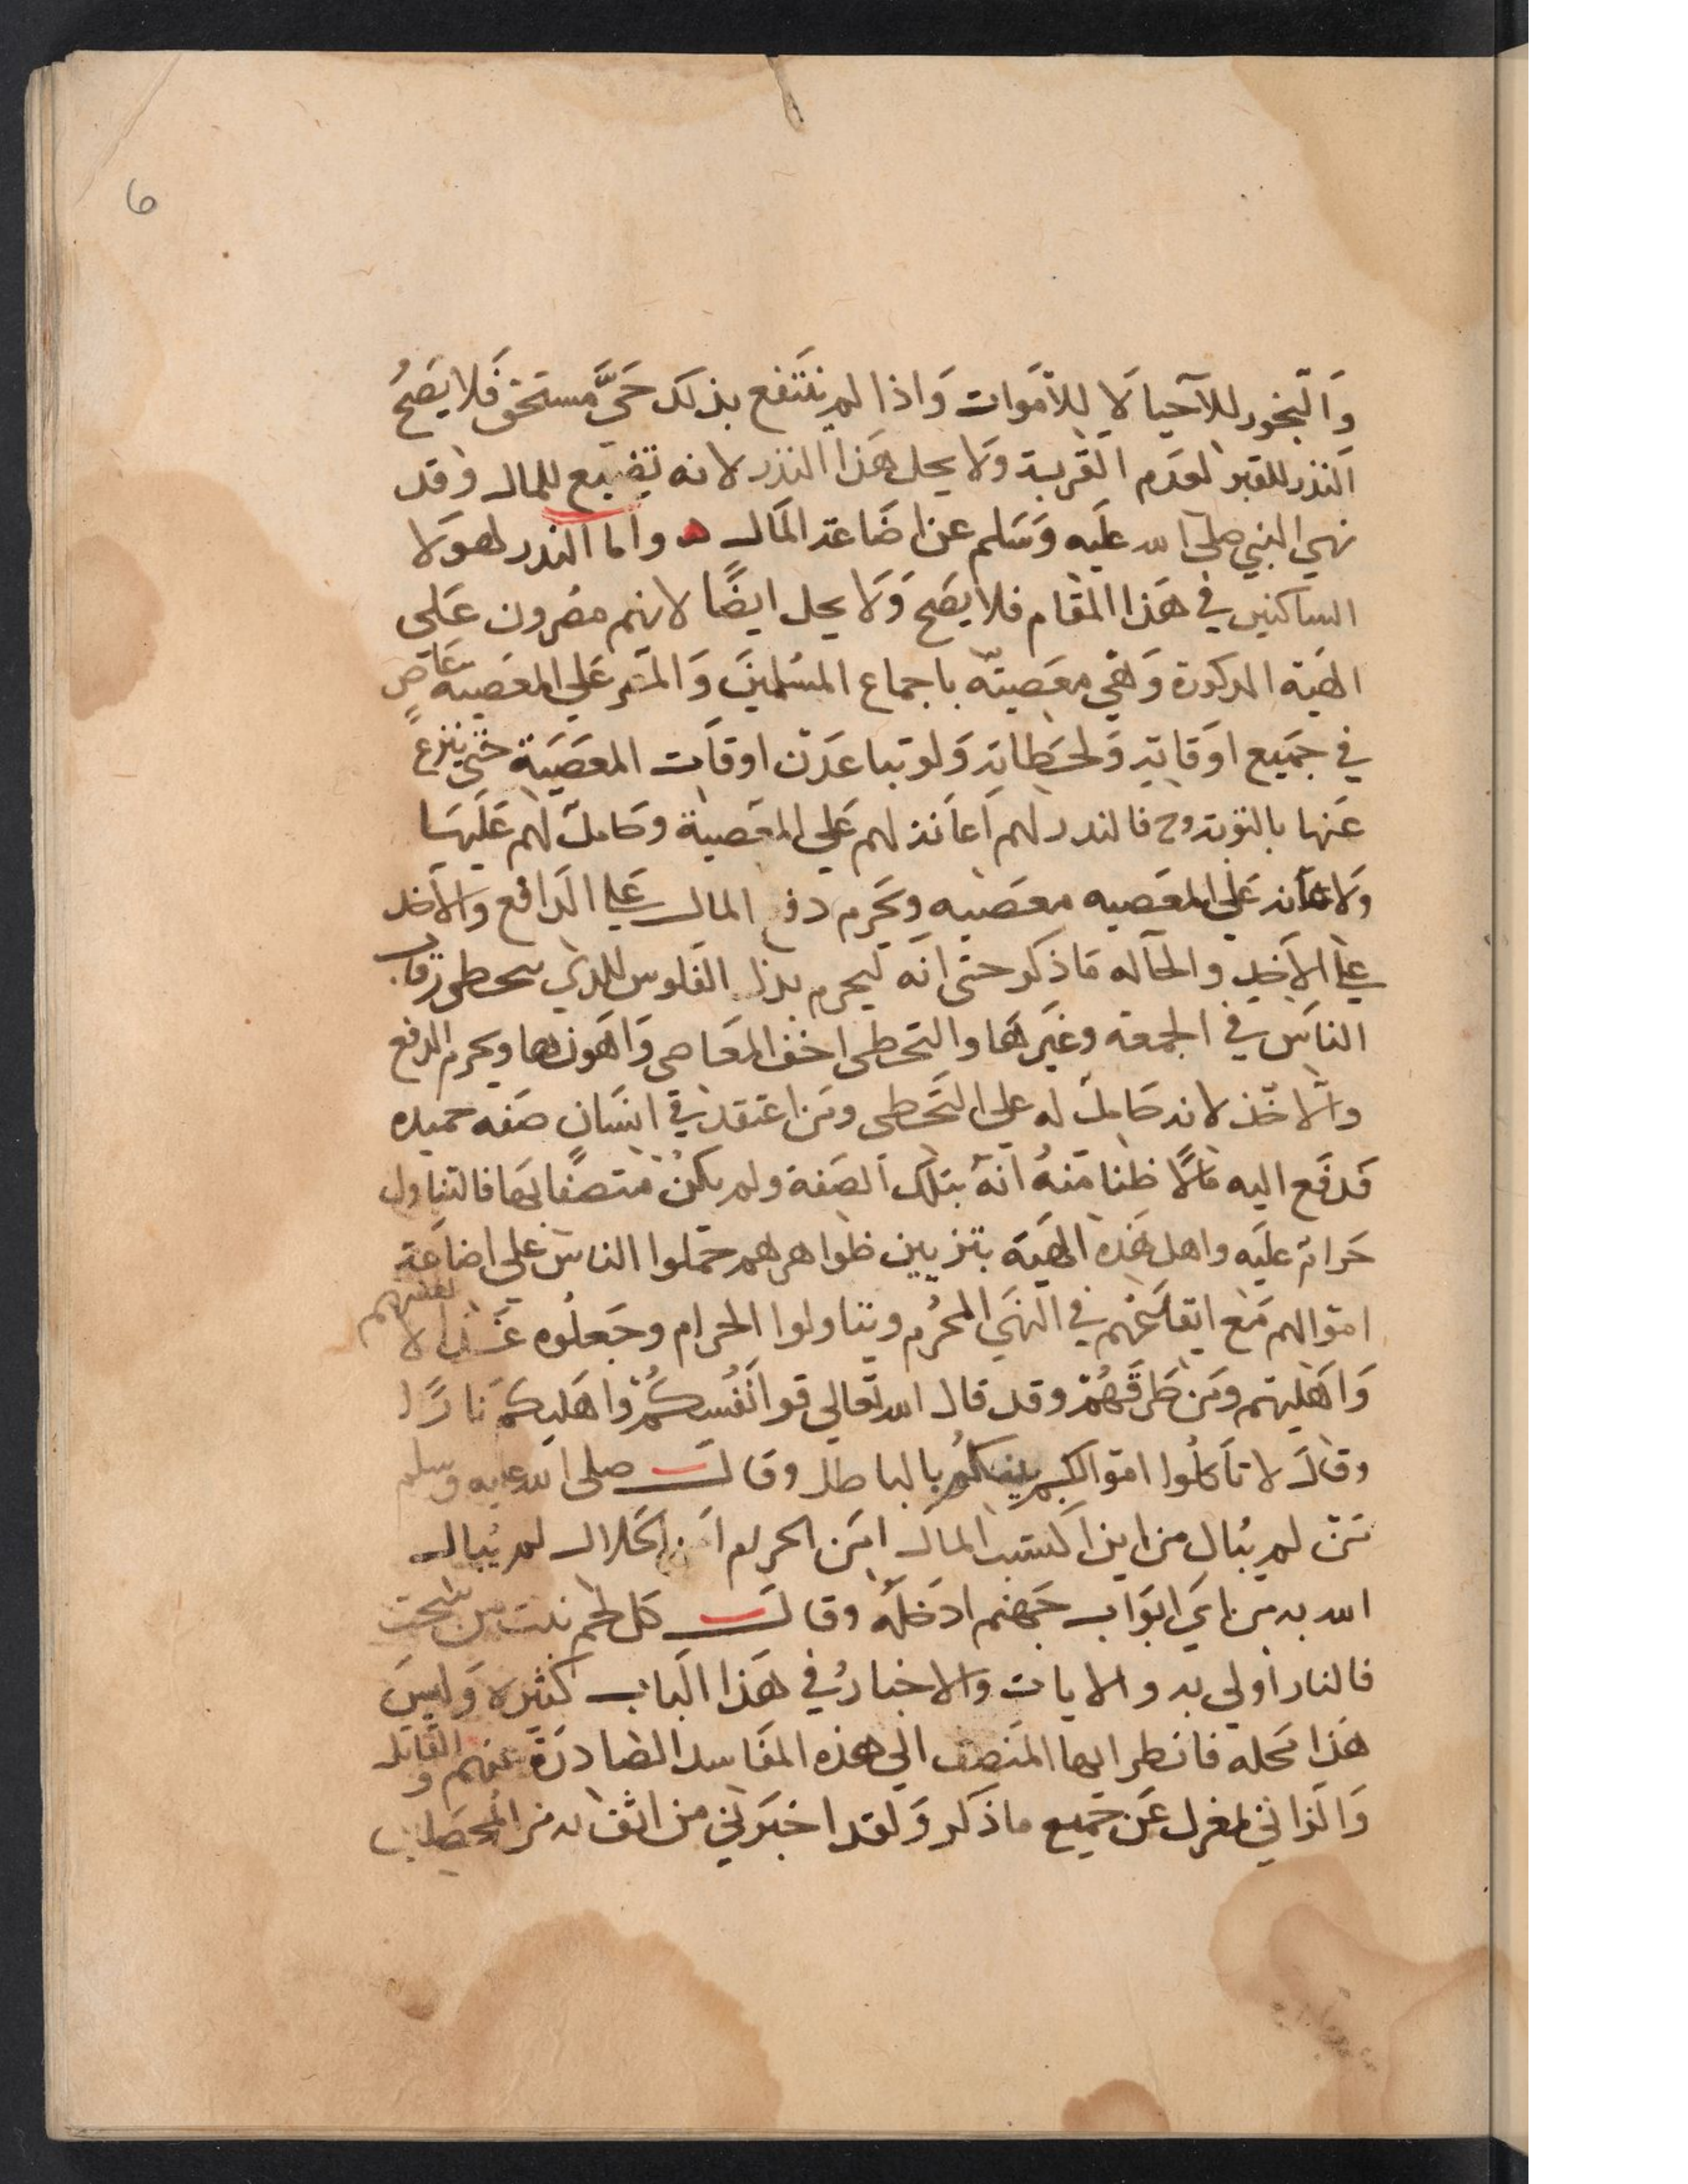 6
وَالبخور للآحيا لا للاَموات وَاذا لم ينتَفع بذلك حَيٌّ مستحق فَلا يَصحُ
النذر للقبر لعَدَم القربة وَلا يحل هَذا النذر لانه تَضييع للمال وقد
نهي النبي صلى الله علَيه وَسَلم عن اضَاعة المَال ه واما النذر لهولا
الساكنين في هَذا المقَام فلا يصَح وَلا يحل ايضًا لانهم مصرون عَلي
الهية المذكورة وَهَي معَصيتَه باجماع المسُلمينَ وَالمصر عَلي المعَصيه عَاصٍ
في جَميع اوَقاته وَلحَظاته وَلو تباعَدَت اوقاَت المعَصيَة حَتى ينزعَ
عَنها بالتوبة وح فالندر لهم اَعاَنة لهم عَلي المعَصية وحَاملٌ لهم عَلَيهَا
وَلاعاَنه عَلي المعَصيه معَصيه وَيحَرم دفع المال عَلي الدَافع وَالاخد
علي الاَخِد والحاَله مَا ذكر حتى انَه ليحرم بذل الفَلوس للذي يتحطى رقاب
الناَس في الجمعَه وغَيَرهَا والتخطى اخَف المعَاصى وَاهَونها ويحرم الدفع
وَالاخَذ لانه حَاملٌ له علي التخَطى ومَن اعتقد في انسَان صفَه حميده
فَدفَع اليه مَالًا ظنا مَنهُ انَهُ بتلك الصَفة ولم يكنُ متصفًا بهَا فالتناول
حَرام علَيه واهل هَذه الهيَة بتزيين ظواهرهم حمَلوا الناسَ علي اضاعَة
امَوالهم مَع ايقاعَهم في النهَي المحَرُم ويتناولوا الحرام وجَعلُوه غَذا لانفسهم
وَاهَليهم ومَن طرقَهُمُ وقد قال الله تَعالي قوا انَفُسكُمُ وَاهَليكم نارًا
وقاَل لا تاَكلُوا امَوالكم بينكُم بالباطل وقال صلى الله عليه وسلم
مَن لم يبُال من اين اكتسَب المال امَن الحرام اَمن الحَلال لم يُبال
الله به من ايَ ابَواب جَهنم ادَخَله وقال كل لحم نبت من سُحت
فالنار اَولي به والايات وَالاخبارُ في هَذا الَباب كثيرة وَليسَ
هَذا مَحَله فانظر ايها المَنصف الي هَذه المفَاسد الصَادرَة عنهم والقَاتل
وَالزاني لمغزل عَن جَميع ما ذكر وَلقد اخبَرني من اثق به من